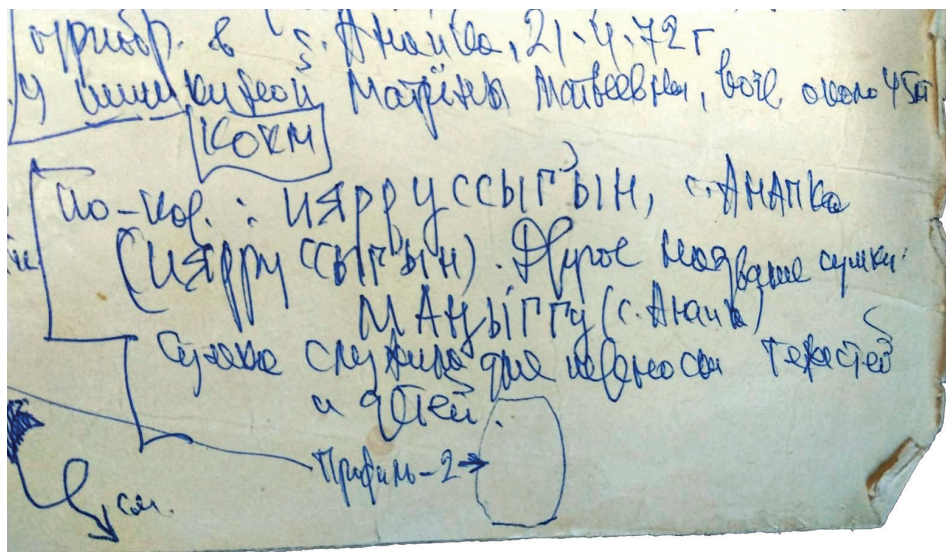 приобр. в с. Анапка, 21.4.72 г
у Шишкиной Матрёны Матвеевны, возр. около 45 л
КОКМ
по-кор.: ИЯРРУССЫГЪЫН, с. АНАПКА
(ИЯРРУССЫГЪЫН). Другое название сумки:
МАӇЫГГУ (с. Анапк)
Сумка служила для переноски тяжестей
и детей.
Профиль-2
см.